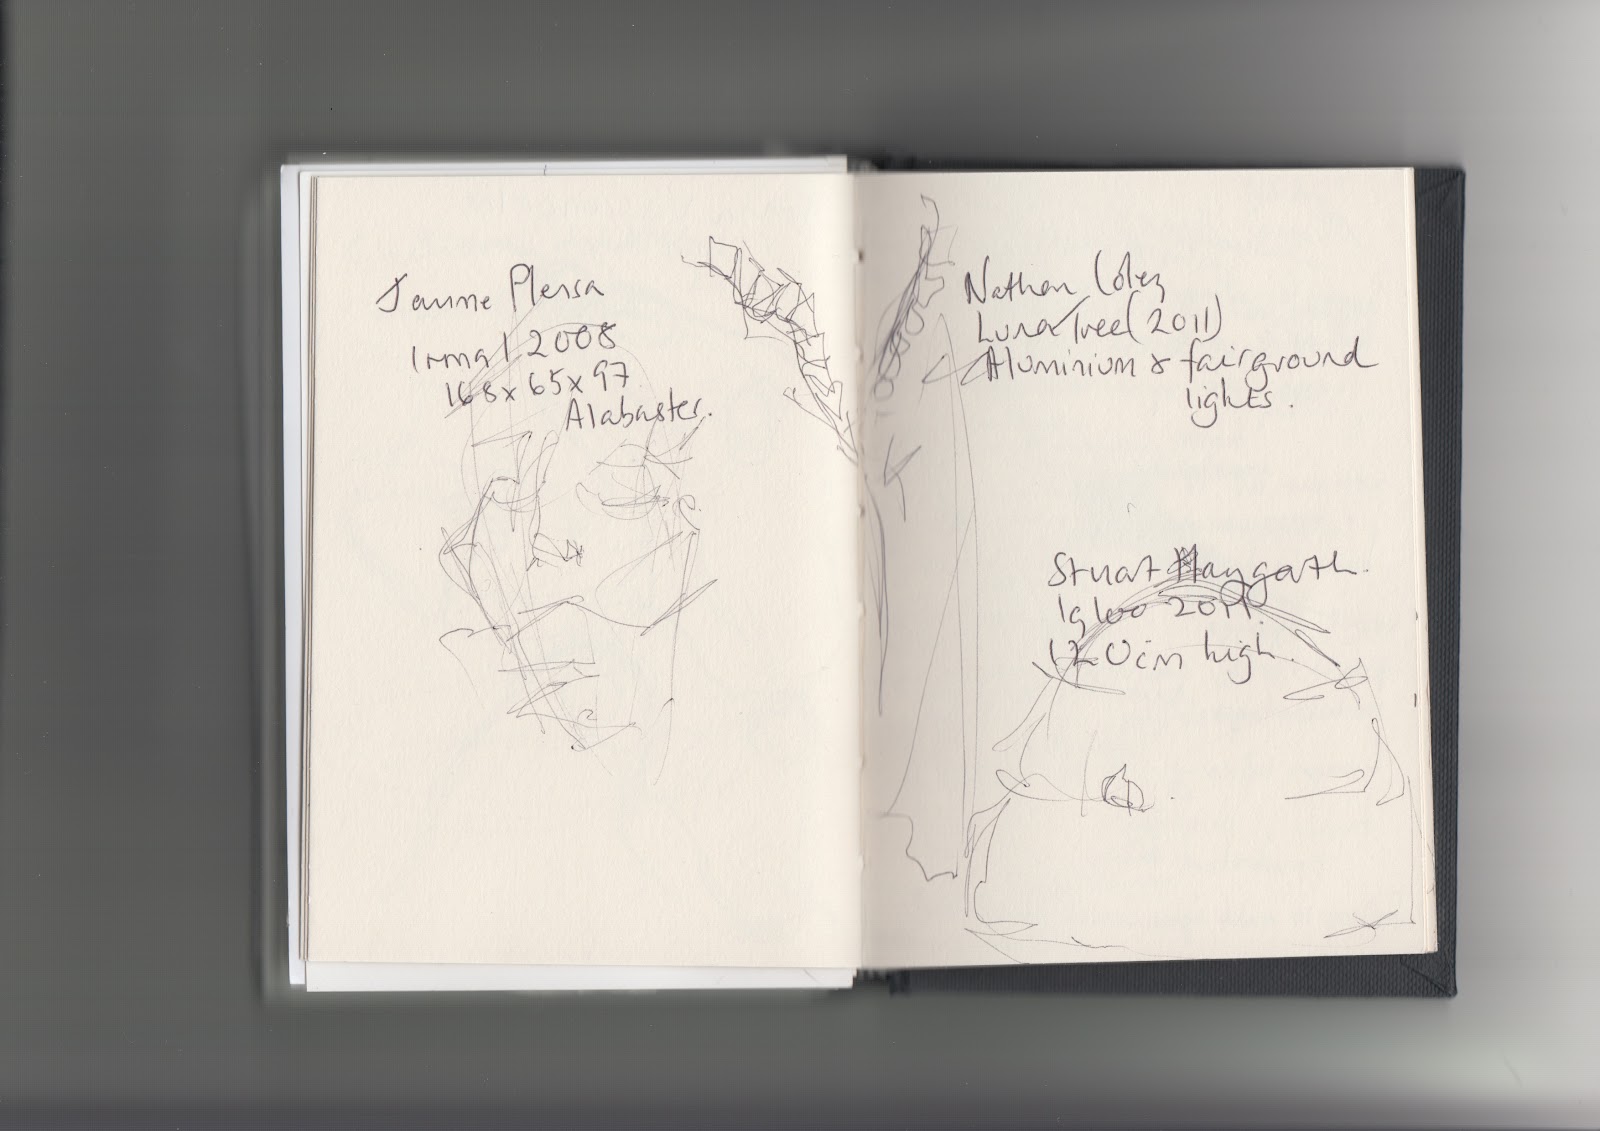 Jaume Plensa
Irma 1 2008
168 x 65 x 97
Alabaster.
Nathan Coley
Luna Tree (2011)
Aluminium & fairground
lights.
Stuart Haygarth.
Igloo 2011.
120cm high.